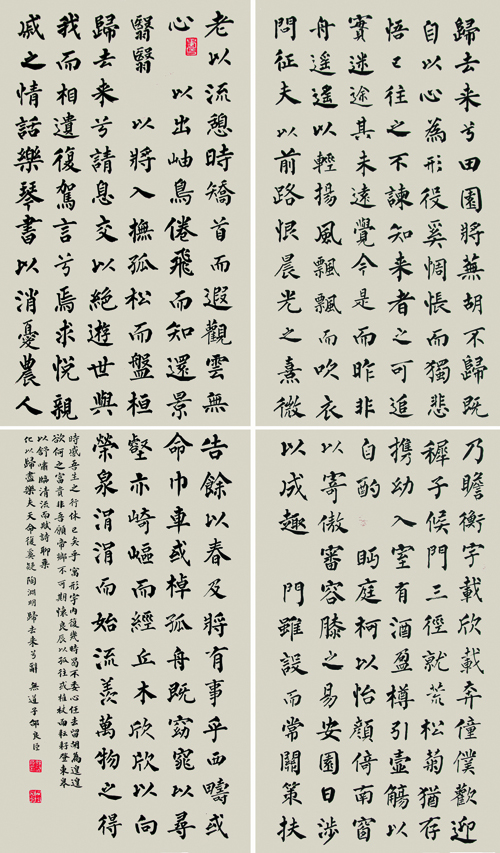 歸去来兮田園將蕪胡不歸既
自以心為形役奚惆悵而獨悲
悟已往之不諫知来者之可追
實迷途其未遠覺今是而昨非
舟遥遥以輕揚風飄飄而吹衣
問征夫以前路恨晨光之熹微
乃瞻衡宇載欣載奔僮僕歡迎
穉子候門三徑就荒松菊猶存
携幼入室有酒盈樽引壺觴以
自酌 眄庭柯以怡顔倚南窗
以寄傲審容膝之易安園日涉
以成趣 門雖設而常關策扶
老以流憩時矯首而遐觀雲無
心 以出岫鳥倦飛而知還景
翳翳 以將入撫孤松而盤桓
歸去来兮請息交以絶遊世與
我而相遺復駕言兮焉求悦親
戚之情話樂琴書以消憂農人
告餘以春及將有事乎西疇或
命巾車或棹孤舟既窈窕以尋
壑亦崎嶇而經丘木欣欣以向
榮泉涓涓而始流羡萬物之得
時感吾生之行休已矣乎寓形宇内復幾時曷不委心任去留胡為遑遑
欲何之富貴非吾願帝鄉不可期懷良辰以孤往或植杖而耘耔登東皋
以舒嘯臨清流而賦詩聊乘
化以歸盡樂夫天命復奚疑 陶淵明歸去来兮辭 無道子 良臣